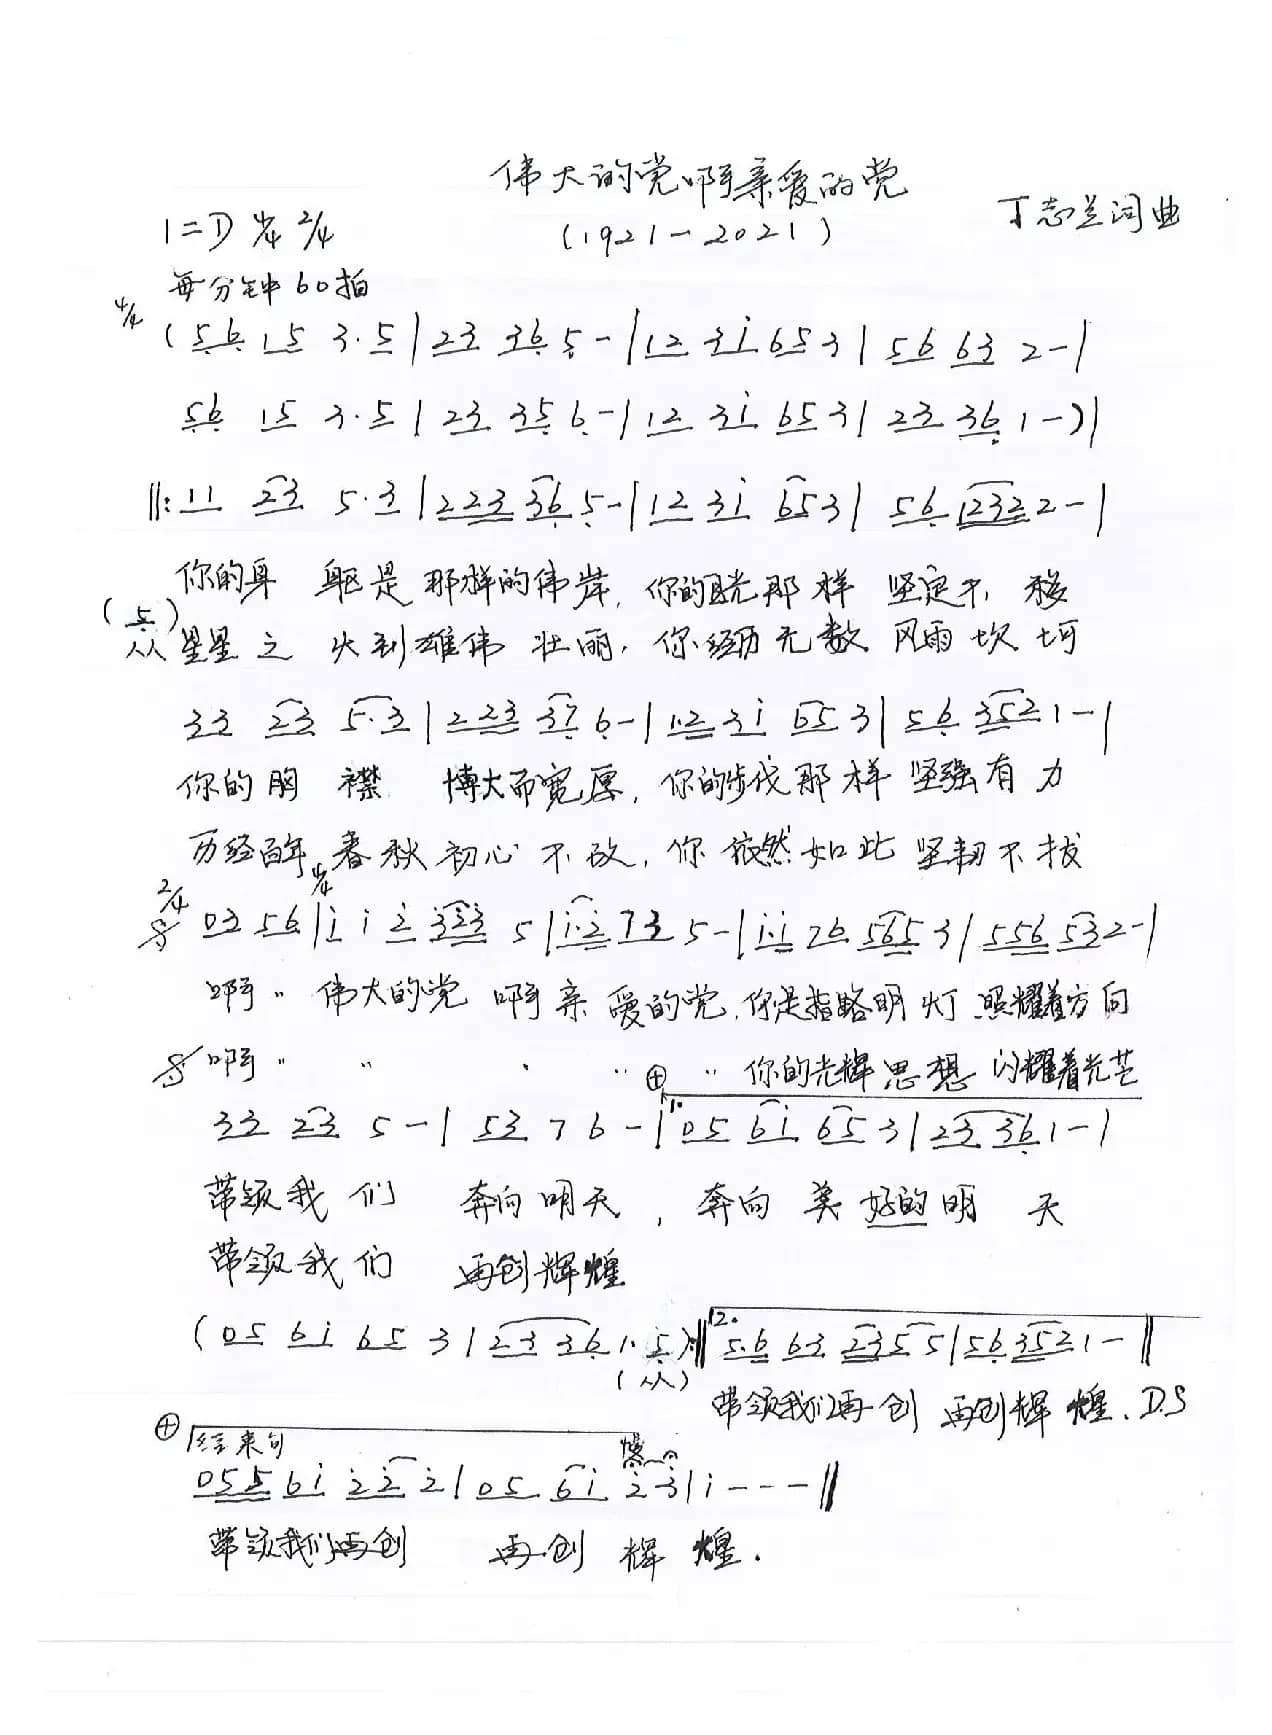 伟大的党啊亲爱的党
丁志兰词曲
1=D 4/4 2/4
(1921-2021)
每分钟60拍
4/4
(56 15 3·5|23 36 5-|12 3i 653|56 63 2-|
56 15 3·5|23 35 6-|12 3i 653|23 36 1-)|
‖:11 23 5·3|223 36 5-|12 3i 653|56 1232 2-|
你的身 躯是 那样的伟岸,你的目光那样 坚定不移
(5)
从 星星之 火到雄伟 壮丽,你经历无数 风雨坎坷
33 23 5·3|223 37 6-|1·2 3i 653|56 352 1-|
你的胸 襟 博大而宽厚,你的步伐那样 坚强有力
历经百年 春秋初心不改,你依然如此坚韧不拔
2/4 4/4
03 56|i i 2 323 5|i·2 73 5-|i·i 76 565 3|556 532-|
啊〃 伟大的党 啊亲爱的党,你是指路明灯 照耀着方向
啊〃 〃 〃 〃 〃 你的光辉思想 闪耀着光芒
33 23 5-|53 7 6-|1. 05 6i 653|23 36 1-|
带领我们 奔向明天,奔向 美好的明 天
带领我们 再创辉煌
(05 6i 65 3|23 36 1·5):‖2. 5·6 63 235 5|56 352 1-‖
(从)
带领我们再创 再创辉煌.D.S
结束句
慢
055 6i 22 2|05 6i 2 3|i---‖
带领我们再创 再创 辉 煌.